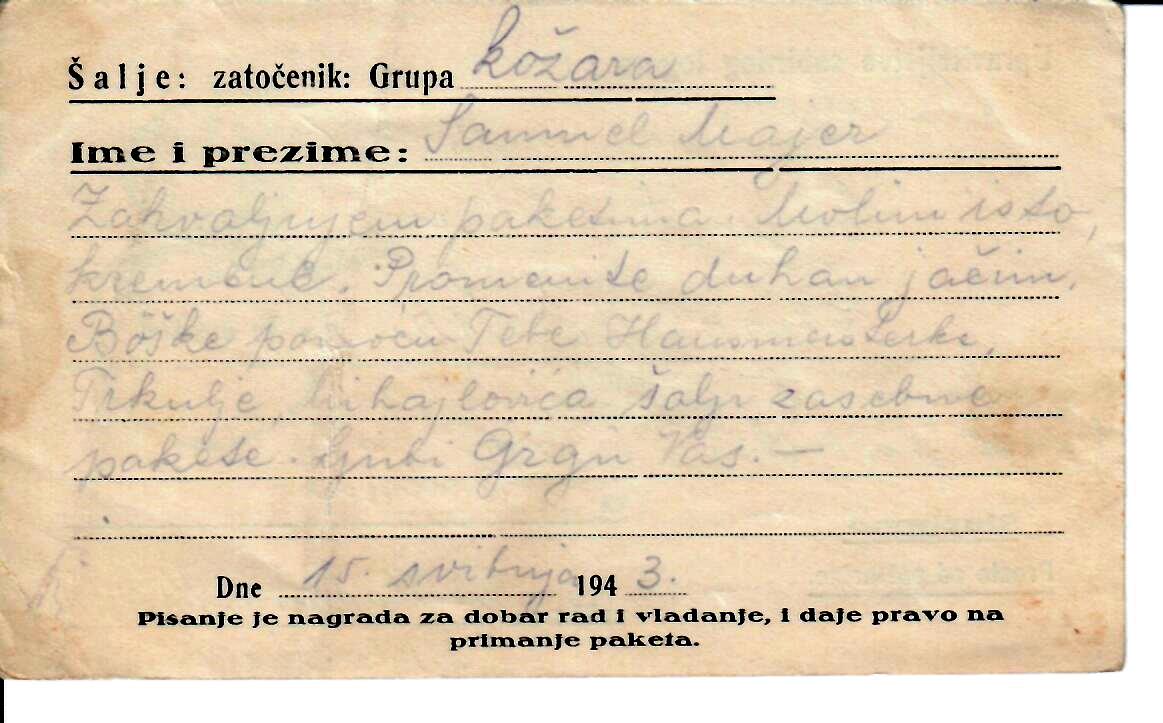 Šalje: zatočenik: Grupa kožara
Ime i prezime: Samuel Majer
Zahvaljujem paketima. Molim isto,
kremene. Promenite duhan jačim.
Böške pomoću Tebe Hausmeisterke,
Trkulje, Mihajlovića šalje zasebne
pakete. Ljubi Grgu Vas. —
Dne 15. svibnja 1943.
Pisanje je nagrada za dobar rad i vladanje, i daje pravo na
primanje paketa.